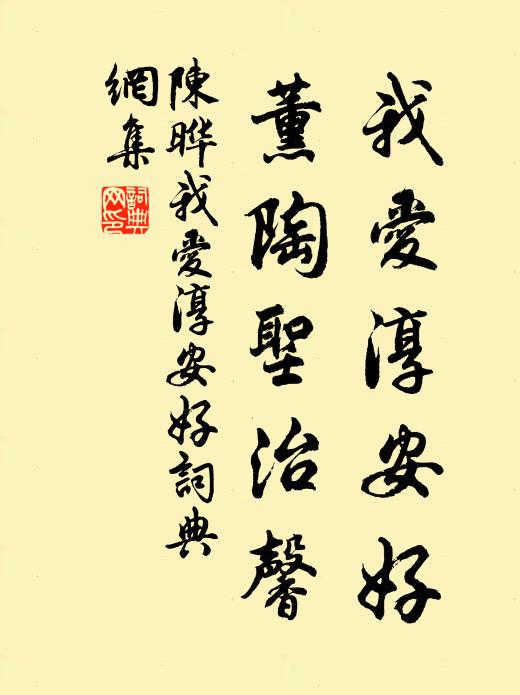 我愛淳安好
薰陶聖治馨
陳曄我愛淳安好詞典
網集
詞典
网印